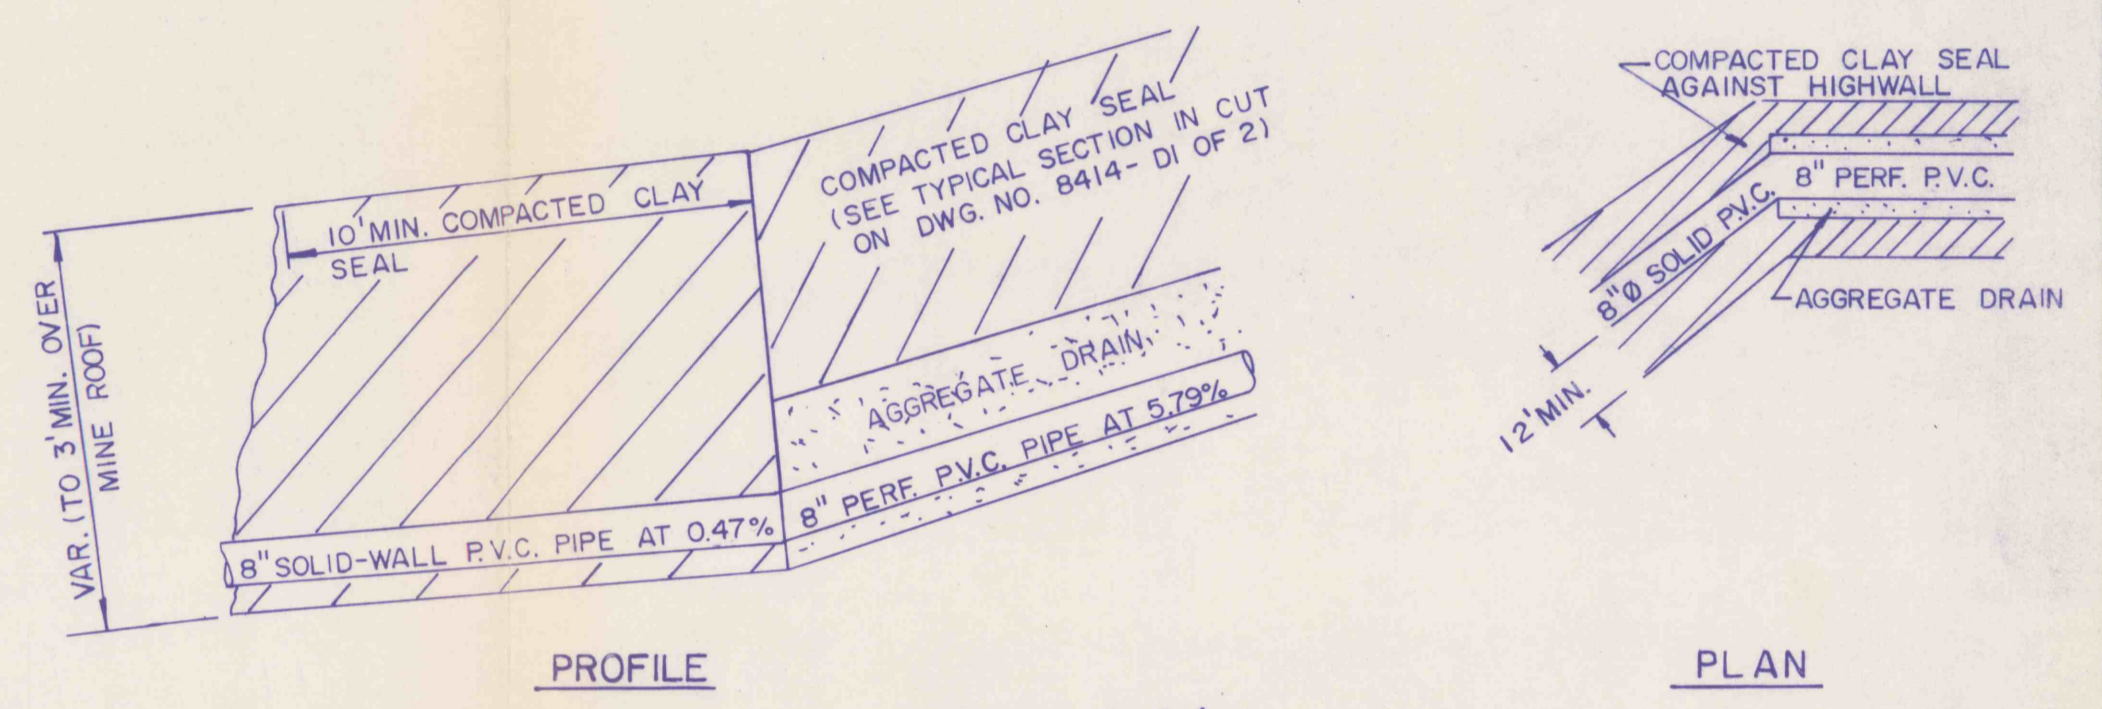 VAR. (TO 3' MIN. OVER
MINE ROOF)
10' MIN. COMPACTED CLAY
SEAL
COMPACTED CLAY SEAL
(SEE TYPICAL SECTION IN CUT
ON DWG. NO. 8414-D1 OF 2)
AGGREGATE DRAIN
8" SOLID-WALL P.V.C. PIPE AT 0.47%
8" PERF. P.V.C. PIPE AT 5.79%
PROFILE
COMPACTED CLAY SEAL
AGAINST HIGHWALL
8" PERF. P.V.C.
8"Ø SOLID P.V.C.
AGGREGATE DRAIN
12' MIN.
PLAN